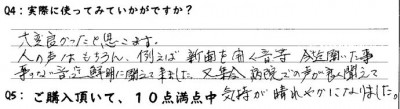 Q4：実際に使ってみていかがですか？
大変良かったと思います。
人の声はもちろん、例えば新聞を開く音等 今迄聞いた事
ない音迄鮮明に聞えて来ました。又集会 病院での声が良く聞えて
気持が晴れやかになりました。
Q5：ご購入頂いて、１０点満点中